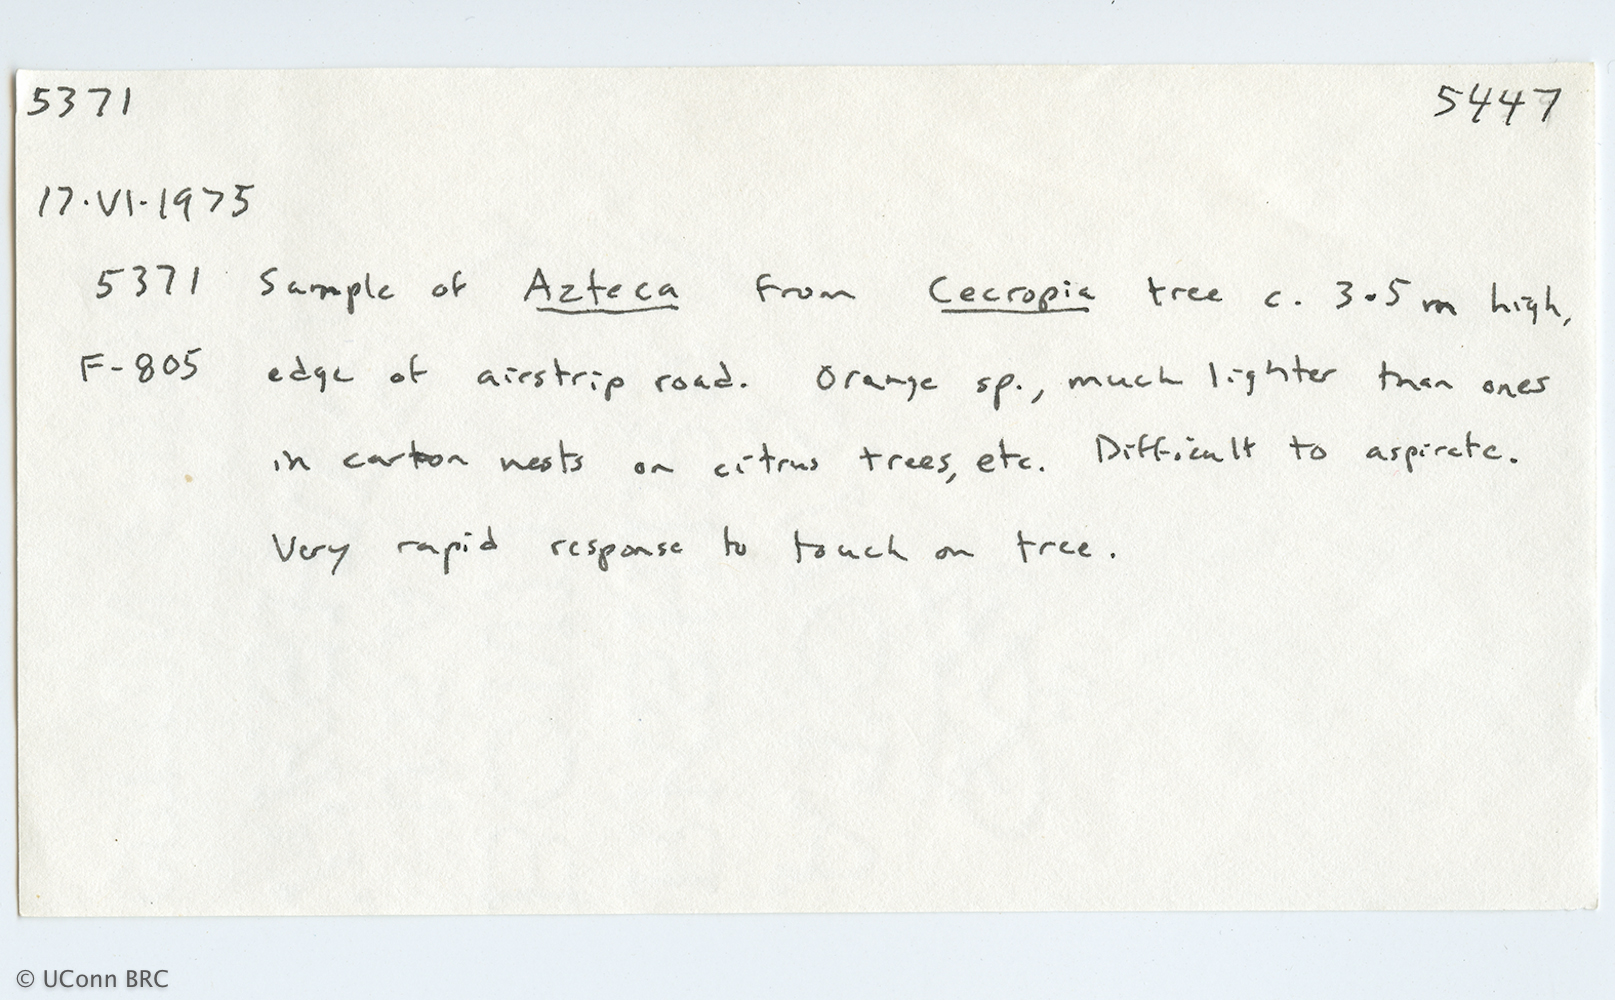 5371 5447
17.VI.1975
5371 Sample of Azteca from Cecropia tree c. 3.5 m high,
F-805 edge of airstrip road. Orange sp., much lighter than ones
in carton nests on citrus trees, etc. Difficult to aspirate.
Very rapid response to touch on tree.
© UConn BRC